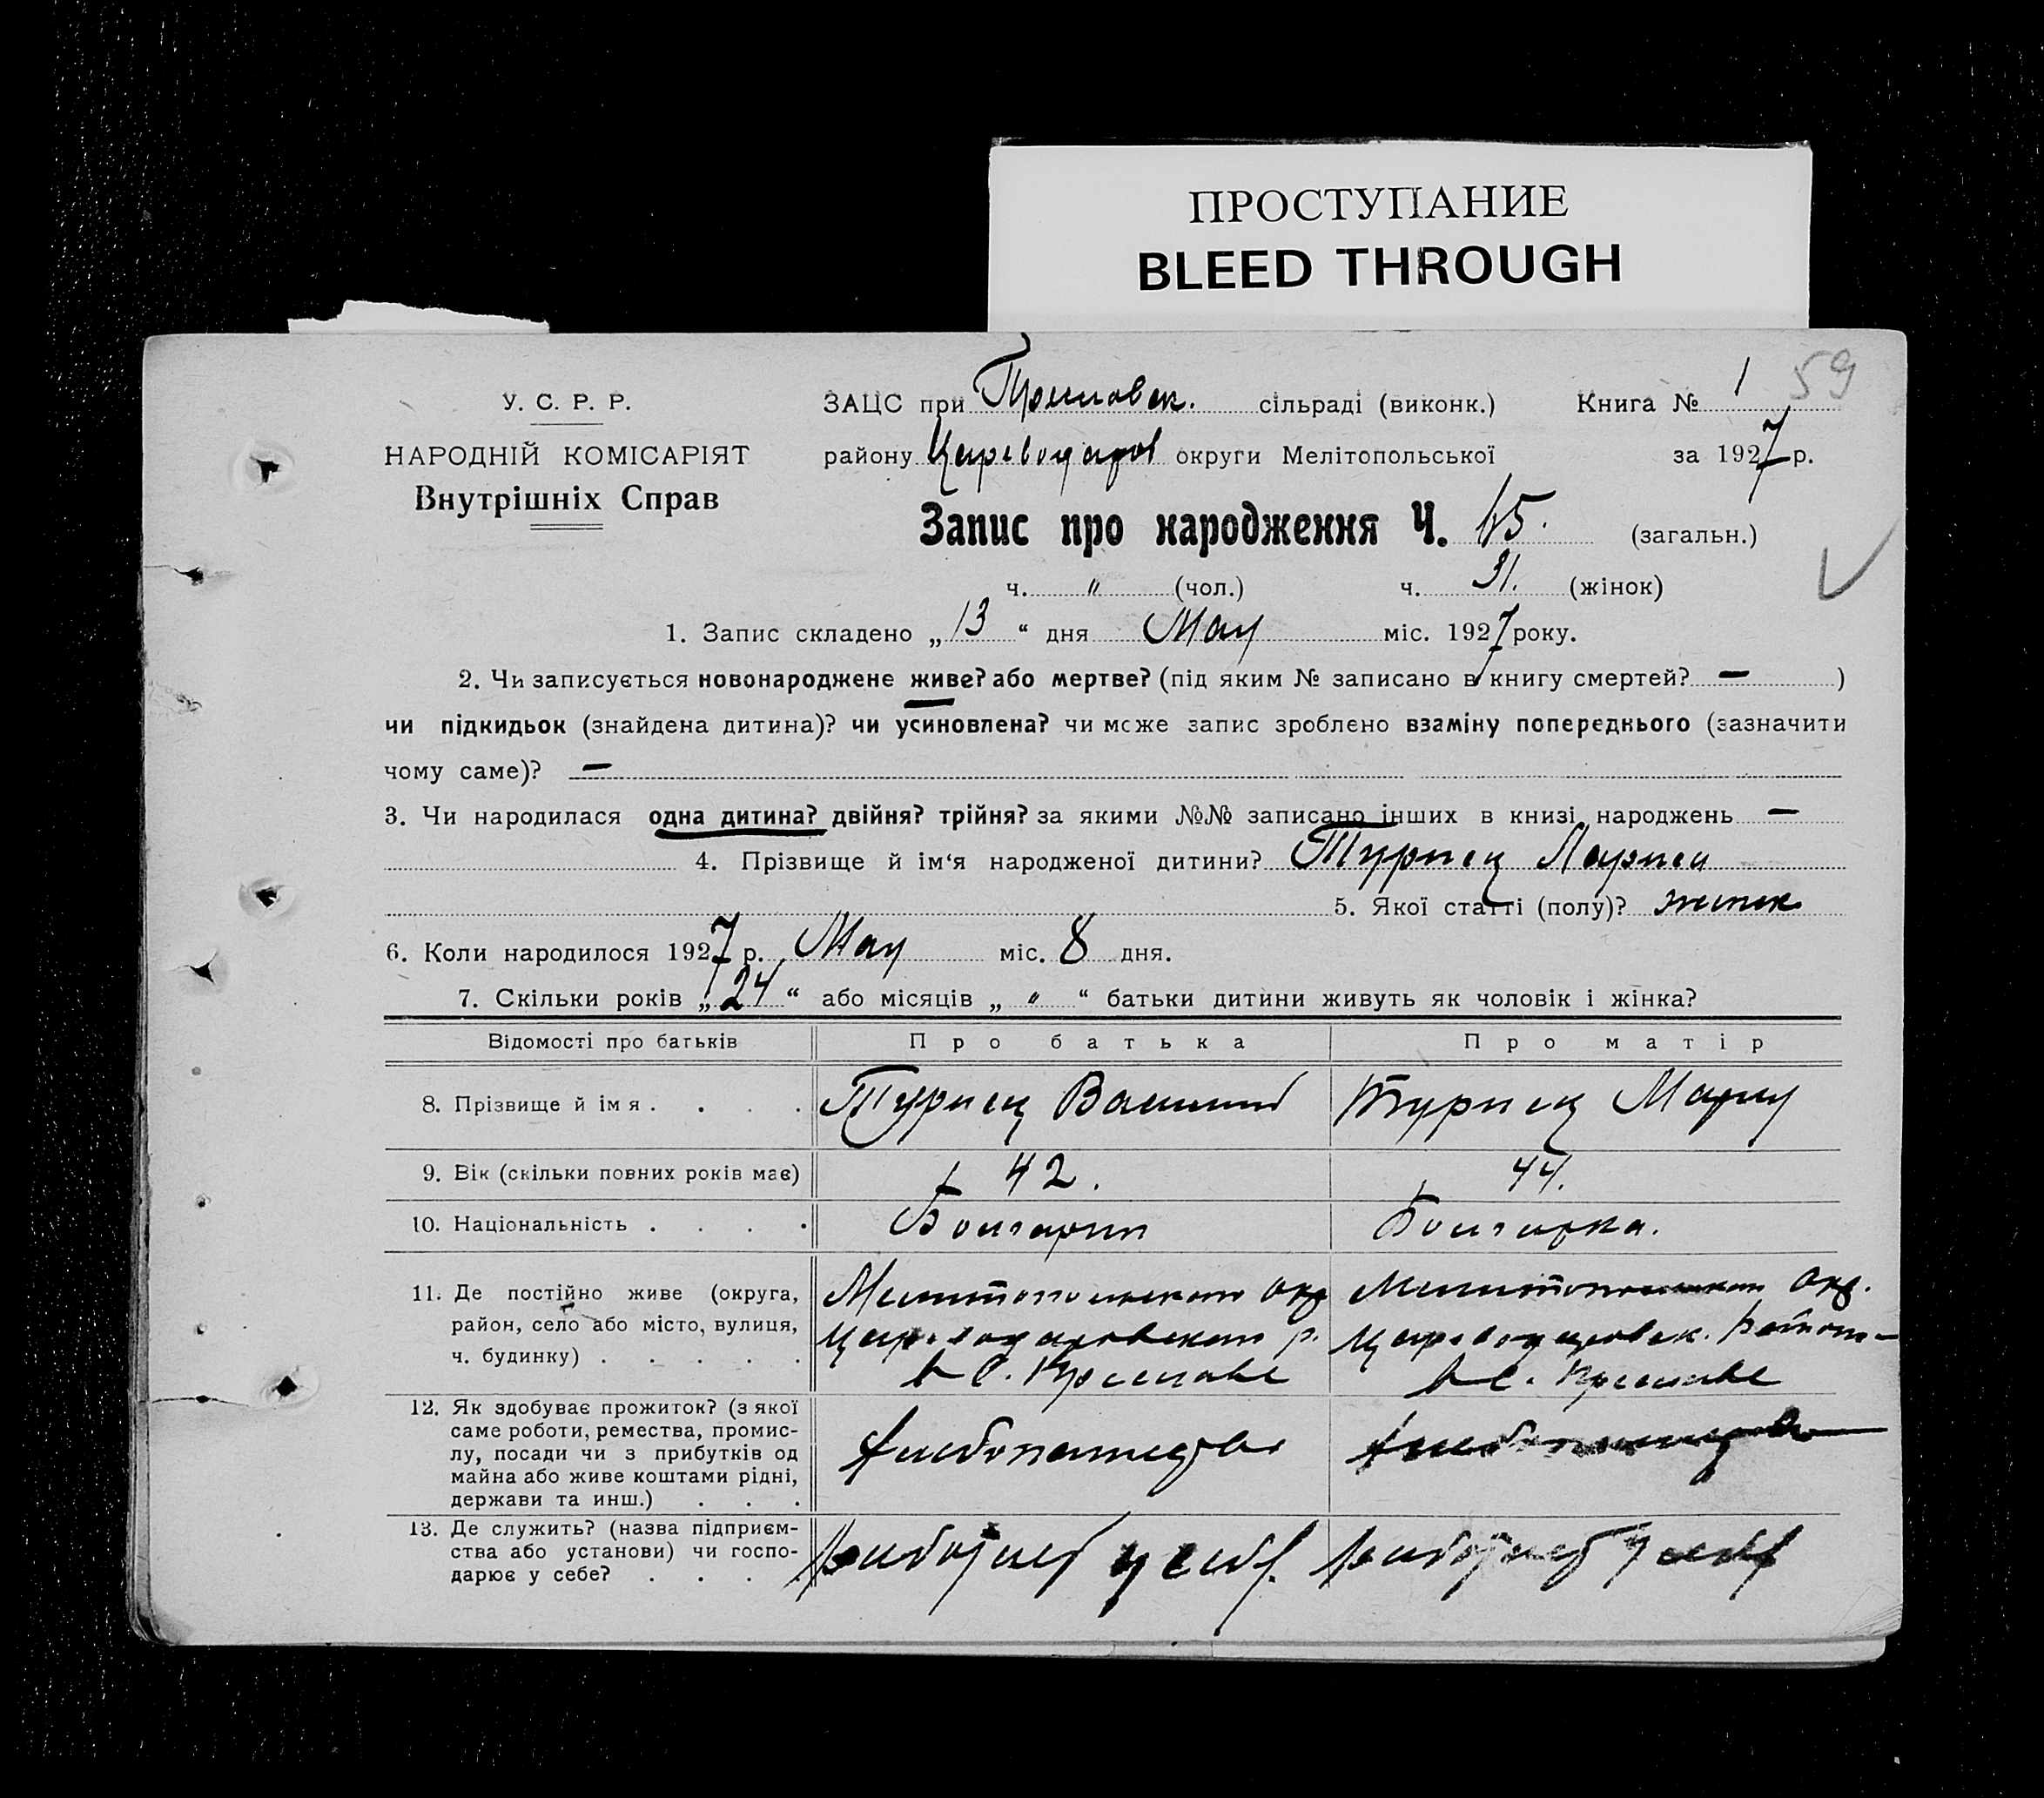 ПРОСТУПАНИЕ
BLEED THROUGH
59
У. С. Р. Р.
НАРОДНІЙ КОМІСАРІЯТ
Внутрішніх Справ
ЗАЦС при сільраді (виконк.) Книга № 1
району Цареводаров округи Мелітопольської за 1927 р.
Запис про народження Ч. 45. (загальн.)
ч. " (чол.) ч. 31. (жінок)
1. Запис складено „ 13 “ дня Мая міс. 1927 року.
2. Чи записується новонароджене живе? або мертве? (під яким № записано в книгу смертей? — )
чи підкидьок (знайдена дитина)? чи усиновлена? чи може запис зроблено взаміну попереднього (зазначити
чому саме)? —
3. Чи народилася одна дитина? двійня? трійня? за якими №№ записано інших в книзі народжень —
4. Прізвище й ім‘я народженої дитини?
5. Якої статті (полу)? женск
6. Коли народилося 1927 р. Мая міс. 8 дня.
7. Скільки років „ 24 “ або місяців „ " “ батьки дитини живуть як чоловік і жінка?
Відомості про батьків Про батька Про матір
8. Прізвище й імя . . . . Василий Мария
9. Вік (скільки повних років має) 42. 44.
10. Національність . . . . Болгарин Болгарка.
11. Де постійно живе (округа,
район, село або місто, вулиця,
ч. будинку) . . . . .
Мелитопольского Окр Мелитопольском Окр.
Цареводаровского р. Цареводаровск. Района
в с. в с.
12. Як здобуває прожиток? (з якої
саме роботи, ремества, промис-
лу, посади чи з прибутків од
майна або живе коштами рідні,
держави та инш.) . . .
Хлебопашество Хлебопашество
13. Де служить? (назва підприєм-
ства або установи) чи госпо-
дарює у себе? . . . .
работает у себя. работает у себя